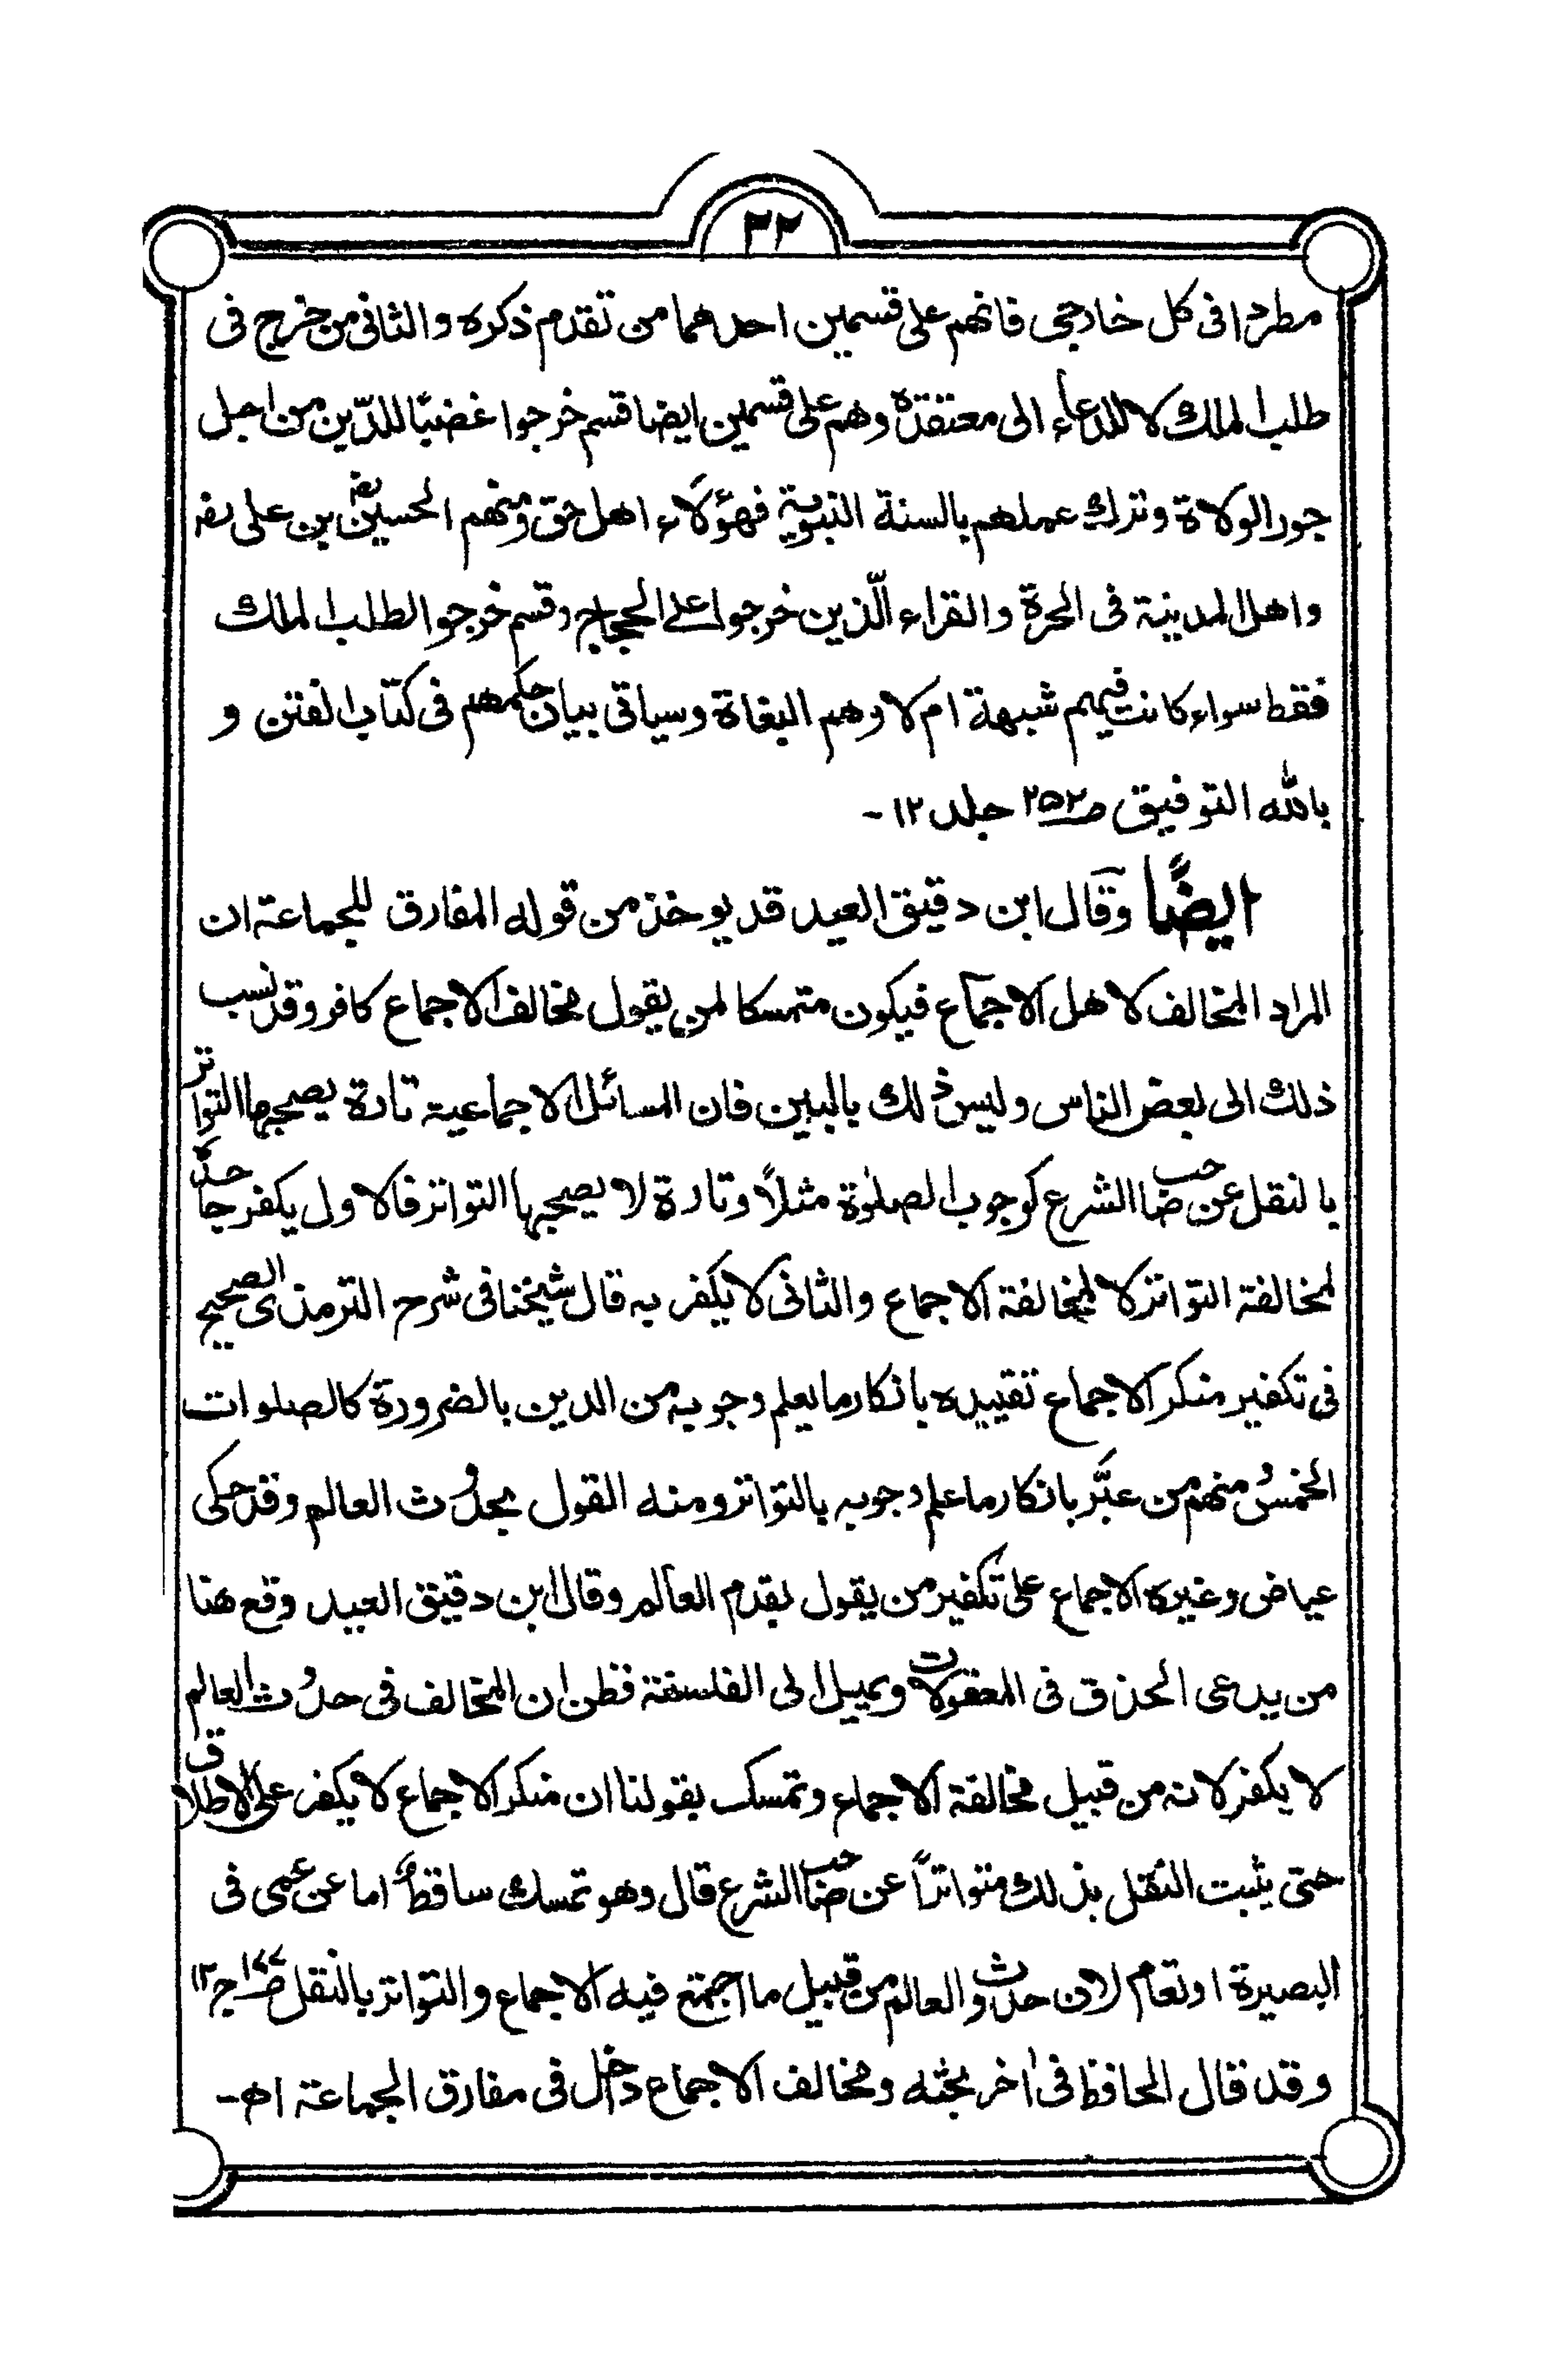 ٣٢
مطردا فى كل خارجى فانهم على قسمين احدهما من تقدم ذكره والثانى من خرج فى
طلب الملك لا للدعاء الى معتقده وهم على قسمين ايضا قسم خرجوا غضبًا للدّين من اجل
جور الولاة وترك عملهم بالسنة النبوية فهؤلاء اهل حق ومنهم الحسين رض بن على رض
واهل المدينة فى الحرة والقراء الّذين خرجوا على الحجاج وقسم خرجوا لطلب الملك
فقط سواء كانت فيهم شبهة ام لا وهم البغاة وسياتى بيان حكمهم فى كتاب الفتن و
بالله التوفيق ص٢٥٢ جلد ١٢ -
ايضًا وقال ابن دقيق العيد قد يوخذ من قوله المفارق للجماعة ان
المراد المخالف لاهل الاجماع فيكون متمسكا لمن يقول مخالف الاجماع كافر وقد نسب
ذلك الى بعض الناس وليس ذلك بالبين فان المسائل الاجماعية تارة يصحبها التواتر
بالنقل عن صاحب الشرع كوجوب الصلوٰة مثلاً وتارة لا يصحبها التواتر فالاول يكفر جاحده
لمخالفة التواتر لا لمخالفة الاجماع والثانى لا يكفر به قال شيخنا فى شرح الترمذى الصحيح
فى تكفير منكر الاجماع تقييده بانكار ما يعلم وجوبه من الدين بالضرورة كالصلوات
الخمس ومنهم من عبَّر بانكار ما علم وجوبه بالتواتر ومنه القول بحدوث العالم وقد حكى
عياض وغيره الاجماع على تكفير من يقول بقدم العالم وقال ابن دقيق العيد وقع هنا
من يدعى الحذق فى المعقولات ويميل الى الفلسفة فظن ان المخالف فى حدوث العالم
لا يكفر لانه من قبيل مخالفة الاجماع وتمسك بقولنا ان منكر الاجماع لا يكفر على الاطلاق
حتى يثبت النقل بذلك متواتراً عن صاحب الشرع قال وهو تمسك ساقط اما عن عمى فى
البصيرة او تعام لان حدوث العالم من قبيل ما اجتمع فيه الاجماع والتواتر بالنقل ص١٧٧ ج١٢
وقد قال الحافظ فى اٰخر بحثه ومخالف الاجماع داخل فى مفارق الجماعة اھ -